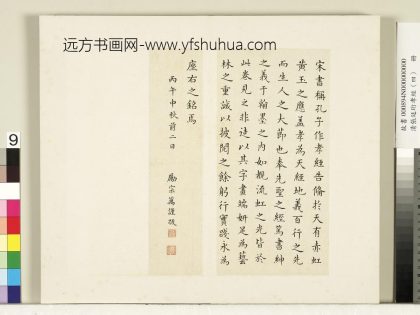 远方书画网-www.yfshuhua.com
宋書稱孔子作孝經告備於天有赤虹
黃玉之應蓋孝為天經地義百行之先
而生人之大節也奉先聖之經篤書紳
之義于翰墨之內如覩流虹之光皆於
此卷見之非徒以其字畫端妍足為藝
林之重誠以披閱之餘躬行實踐永為
座右之銘焉
丙午中秋前二日
勵宗萬謹跋
9
故書 000894N000000000
清張廷玉
孝經(四) 冊